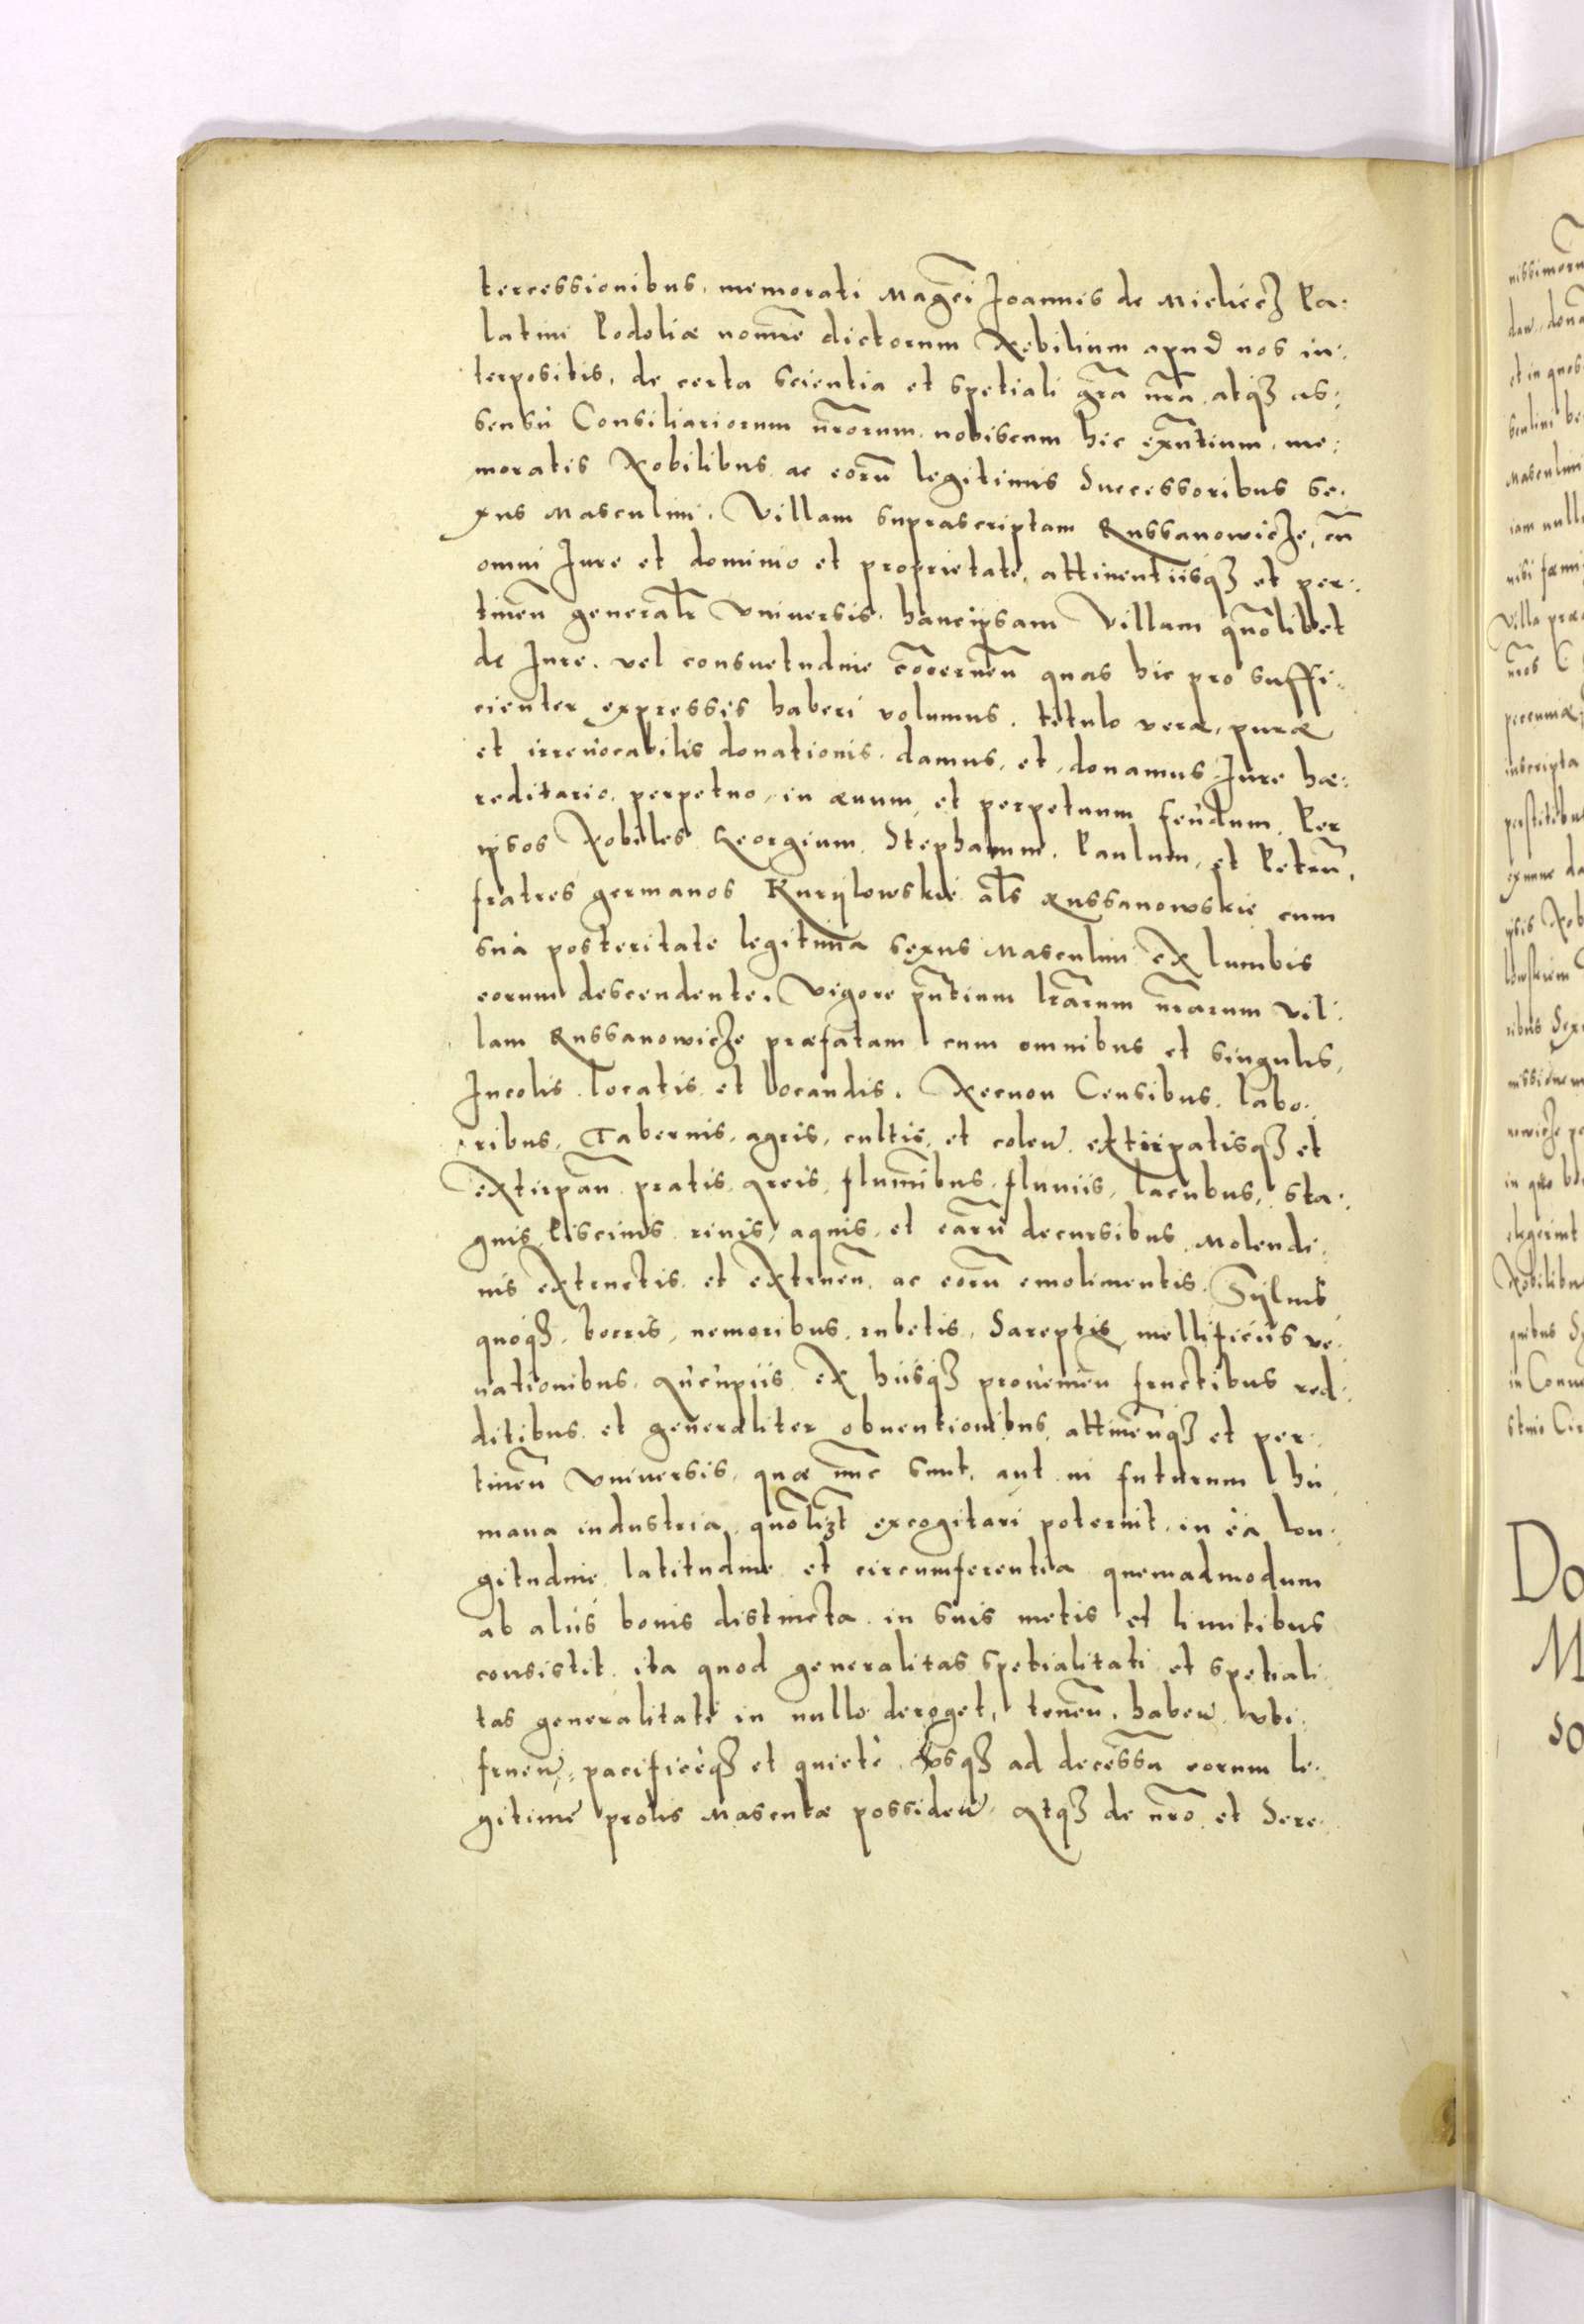 tercessionibus, memorati Mag̃ci Joannis de Mieliecz Pa:
latini Podoliæ nomĩe dictorum Nobilium apud nos in:
terpositis, de certa scientia et spetiali grã nrã atqȝ as:
sensu Consiliariorum nr̃orum, nobiscum hic exñtium, me:
moratis Nobilibus ac eorũ legitimis Successoribus se:
xus Masculini. Villam suprascriptam Russanowicze, cũ
omni Jure et dominio et proprietate, attinentiisqȝ et per:
tineñ generalr̃ Vniuersis, hancipsam Villam quõlibet
de Jure, vel consuetudine cõcerneñ quas hic pro suffi:
cienter expressis haberi volumus, titulo veræ, puræ
et irreuocabilis donationis, damus, et donamus Jure hæ:
reditario, perpetuo, in æuum, et perpetuum feudum. Per
ipsos Nobiles Georgium, Stephanum, Paulum, et Petrũ,
fratres germanos Kuryłowskie als̃ Russanowskie cum
sua posteritate legitima sexus Masculini ex lumbis
eorum descendente. Vigore pñtium lrãrum nrãrum Vil:
lam Russanowicze præfatam cum omnibus et singulis,
Incolis locatis et locandis. Necnon Censibus, labo:
ribus, Tabernis, agris, cultis, et coleñ, extirpatisqȝ et
extirpañ pratis, Areis, flumĩbus, fluuiis, lacubus, sta:
gnis, Piscinis, riuis, aquis, et earũ decursibus, Molendi:
nis extructis et extrueñ, ac eorũ emolimentis. Syluis
quoqȝ, borris, nemoribus, rubetis, Sareptis, mellificiis, ve:
nationibus, Aucupiis, ex hiisqȝ proueniẽn fructibus red:
ditibus, et generaliter obuentionibus, attineñqȝ et per:
tineñ Vniuersis, quæ nũc sunt, aut in futurum hu:
mana industria quõlizt̃ excogitari poterint, in ea lon:
gitudine, latitudine et circumferentia quemadmodum
ab aliis bonis distincta in suis metis et limitibus
consistit, ita quod generalitas spetialitati et spetiali
tas generalitati in nullo deroget, teneñ, habeñ, vti:
frueñ, pacificeqȝ et quietè, Vsqȝ ad decessũ eorum le:
gitimè prolis Masculæ possideñ. Atqȝ de nr̃o et Sere:
nissimorũ
et in quos
Masculini
iam null
Villa præ
inscripta
ex nunc da
ipsis Nob
ribus Sex
elegerint
Nobilibu
Do
M
so